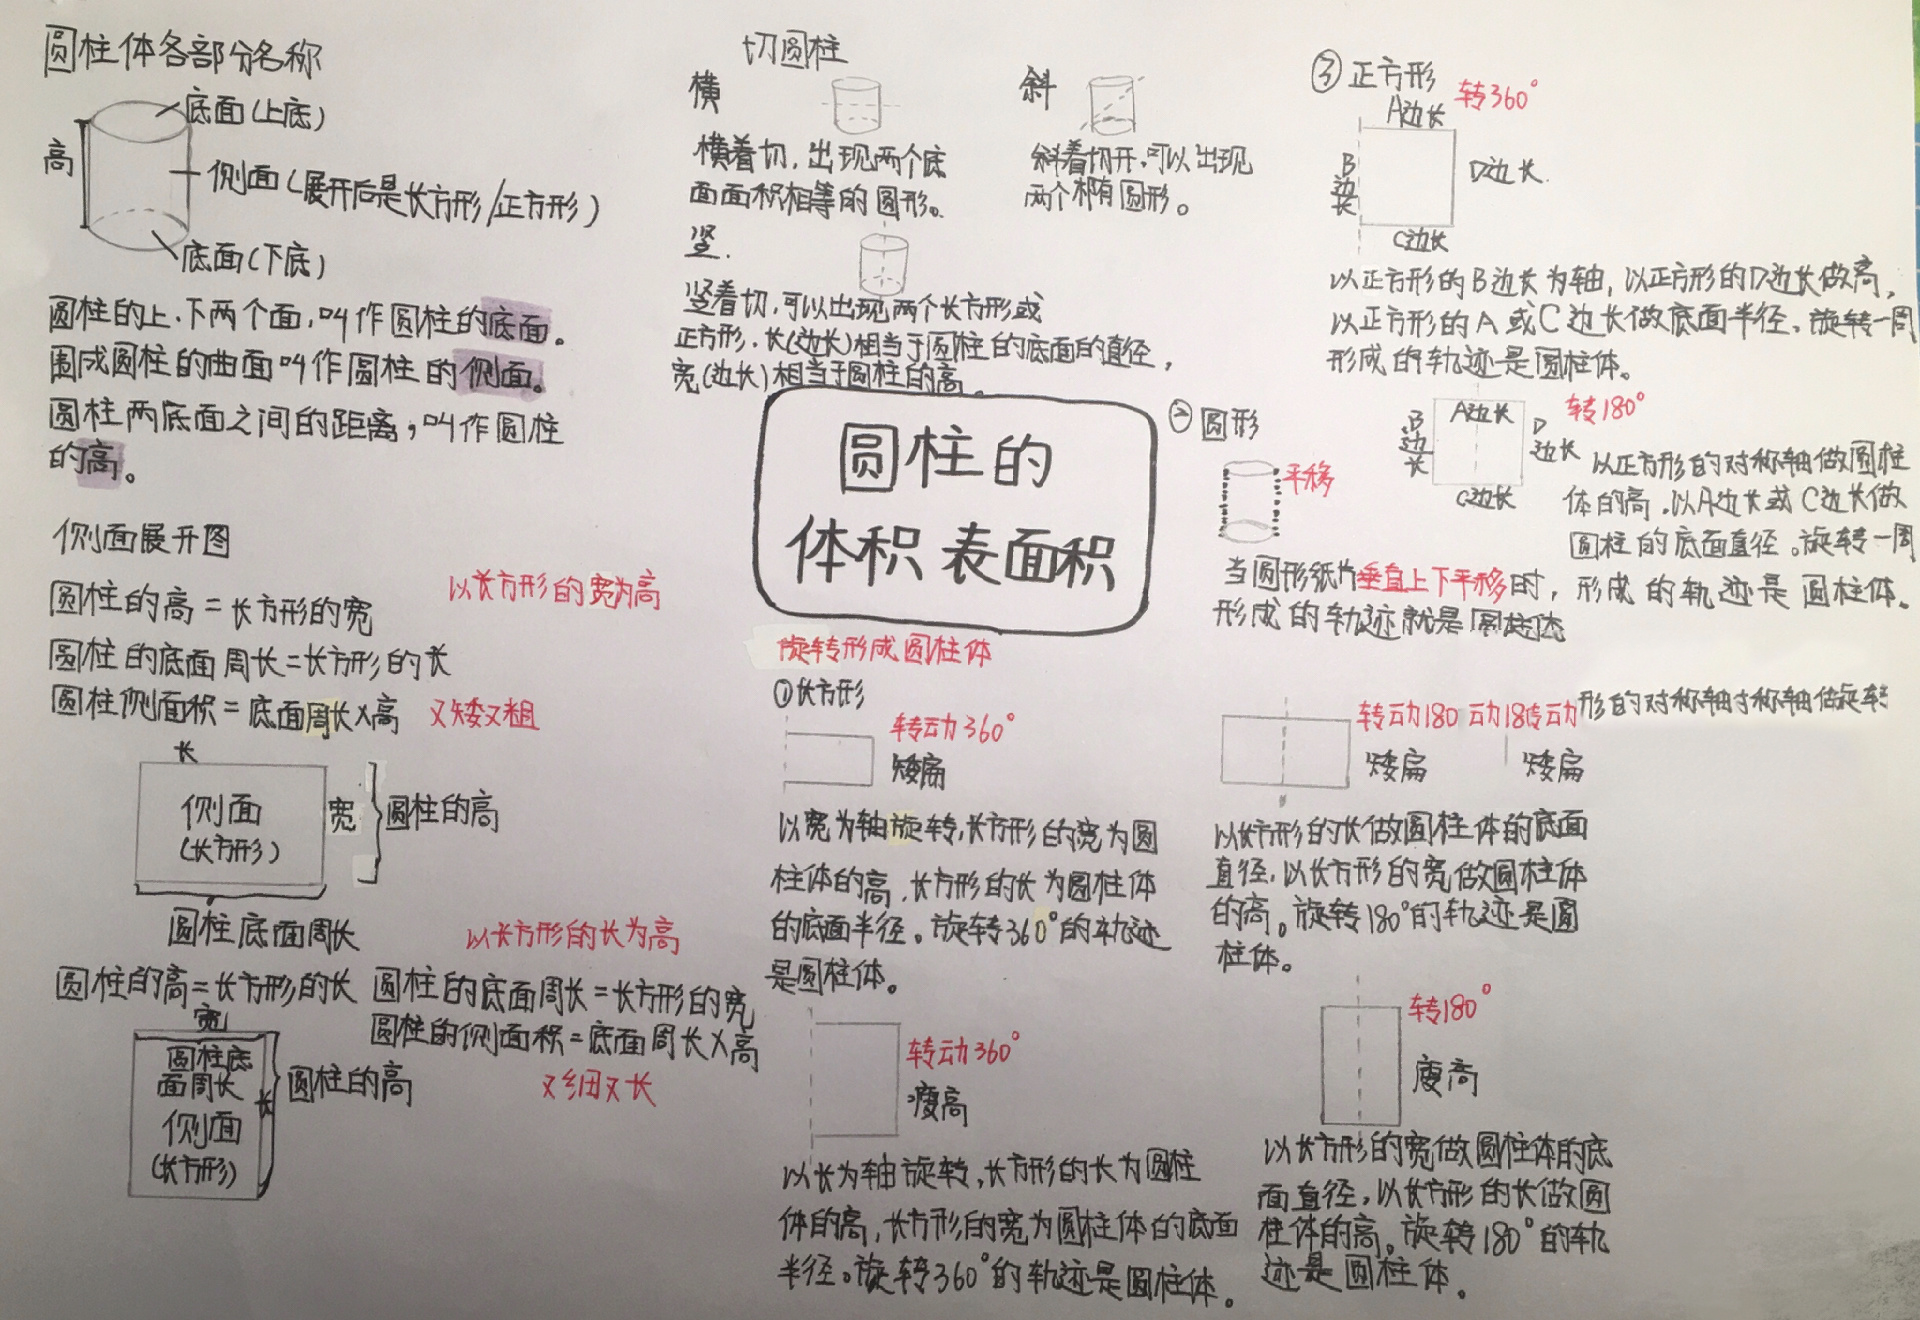 圆柱体各部分名称
底面(上底)
高
侧面(展开后是长方形/正方形)
底面(下底)
圆柱的上.下两个面,叫作圆柱的底面。
围成圆柱的曲面叫作圆柱的侧面。
圆柱两底面之间的距离,叫作圆柱
的高。
侧面展开图
以长方形的宽为高
圆柱的高=长方形的宽
圆柱的底面周长=长方形的长
圆柱侧面积=底面周长×高
又矮又粗
长
侧面
(长方形)
宽
圆柱的高
圆柱底面周长
以长方形的长为高
圆柱的高=长方形的长
圆柱的底面周长=长方形的宽
圆柱的侧面积=底面周长×高
又细又长
宽
圆柱底
面周长
侧面
(长方形)
长
圆柱的高
切圆柱
横
横着切,出现两个底
面面积相等的圆形。
斜
斜着切开,可以出现
两个椭圆形。
竖.
竖着切,可以出现两个长方形或
正方形.长(边长)相当于圆柱的底面的直径,
宽(边长)相当于圆柱的高。
圆柱的
体积 表面积
旋转形成圆柱体
①长方形
转动360°
矮扁
以宽为轴旋转,长方形的宽为圆
柱体的高,长方形的长为圆柱体
的底面半径。旋转360°的轨迹
是圆柱体。
转动360°
瘦高
以长为轴旋转,长方形的长为圆柱
体的高,长方形的宽为圆柱体的底面
半径。旋转360°的轨迹是圆柱体。
转动180 动18转动
形的对称轴对称轴做旋转
矮扁
矮扁
以长方形的长做圆柱体的底面
直径,以长方形的宽做圆柱体
的高。旋转180°的轨迹是圆
柱体。
转180°
瘦高
以长方形的宽做圆柱体的底
面直径,以长方形的长做圆
柱体的高。旋转180°的轨
迹是圆柱体。
②圆形
平移
当圆形纸片垂直上下平移时,
形成的轨迹就是圆柱体
③正方形
转360°
A边长
B边长
D边长.
C边长
以正方形的B边长为轴,以正方形的D边长做高,
以正方形的A或C边长做底面半径。旋转一周
形成的轨迹是圆柱体。
转180°
A边长
B边长
D边长
C边长
以正方形的对称轴做圆柱
体的高.以A边长或C边长做
圆柱的底面直径。旋转一周
形成的轨迹是圆柱体。